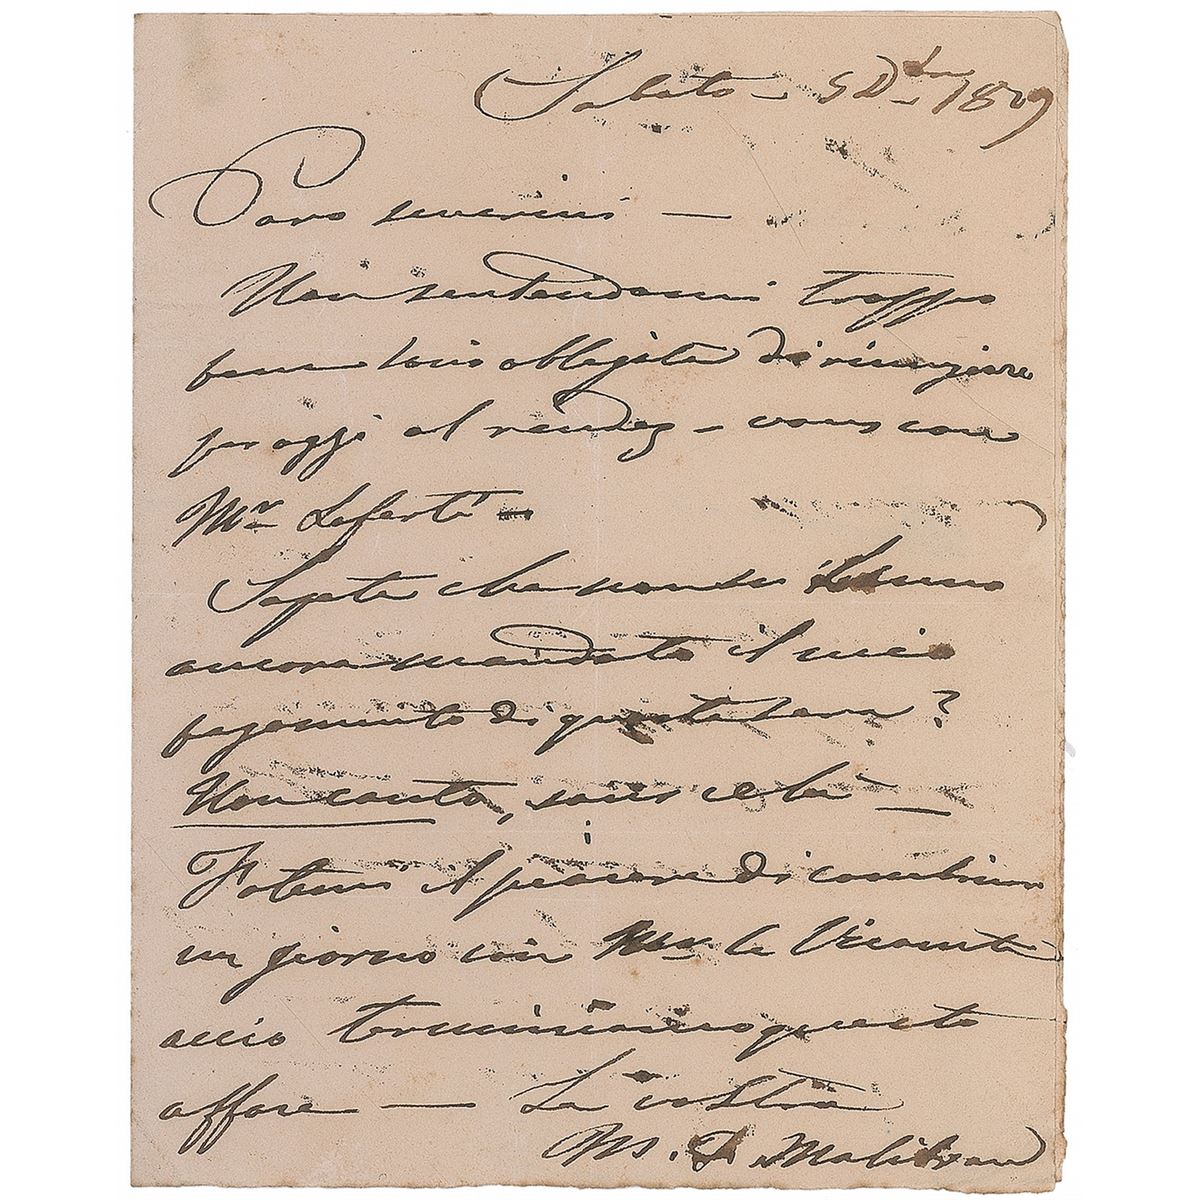 Sabato - 5 D.bre 1829
Caro severini —
Non sentendomi troppo
bene sono obbligata di rinunziare
per oggi al rendez-vous con
Mr. Laferté -
Sapete che non mi hanno
ancora mandato il mio
pagamento di questa sera?
Non canto, sans cela —
Fatemi il piacere di combinar
un giorno con Mr. le Vicomte
acciò terminiamo questo
affare — La vostra
M. F. Malibran